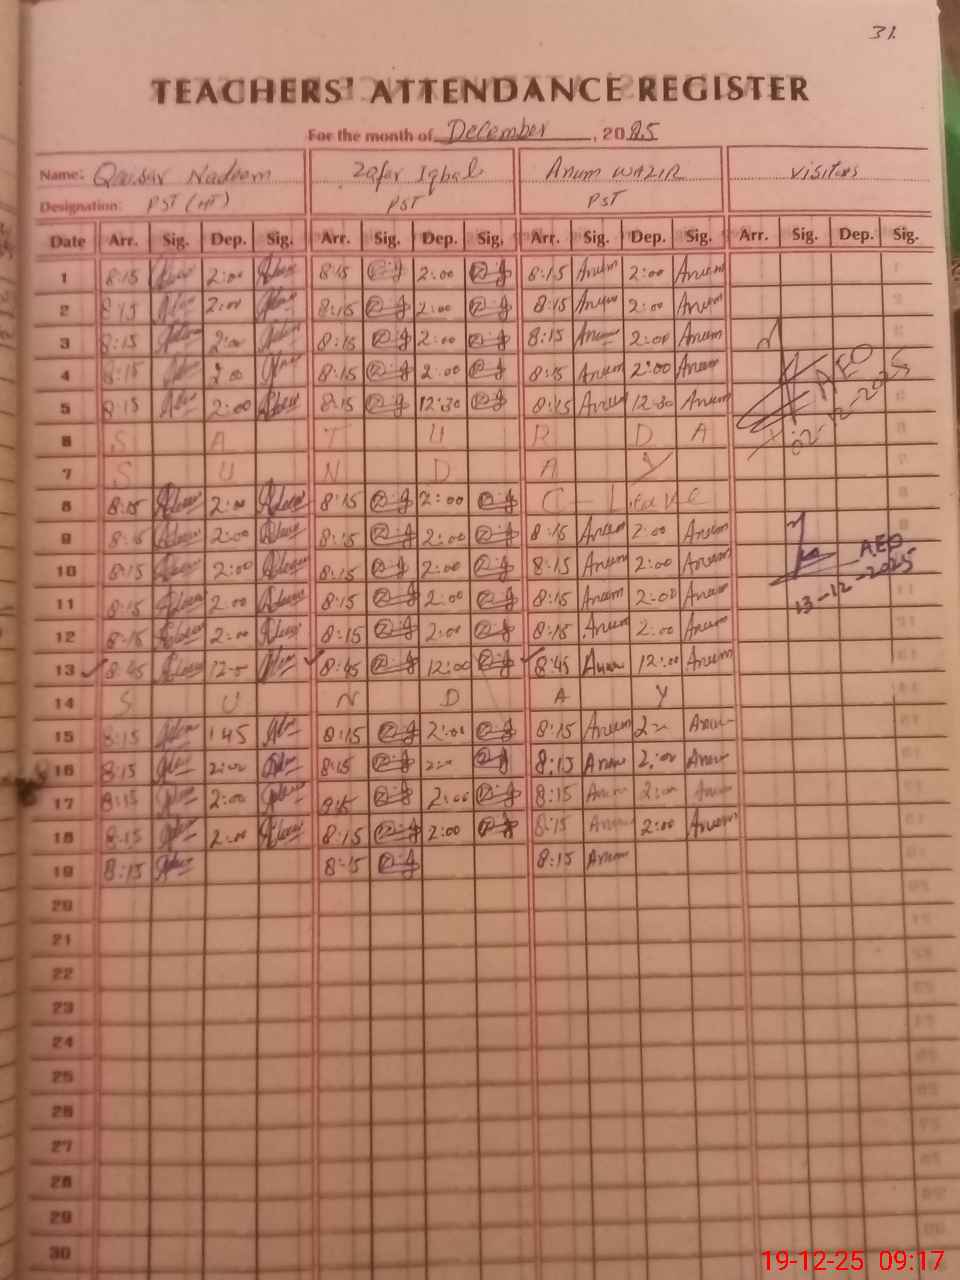 31.
TEACHERS' ATTENDANCE REGISTER
For the month of December, 2025
Name: Qausar Nadeem Zafar Iqbal Anum WAZIR visitors
Designation: PST (HT) PST PST
Date Arr. Sig. Dep. Sig. Arr. Sig. Dep. Sig. Arr. Sig. Dep. Sig. Arr. Sig. Dep. Sig.
1 8:15 2:00 8:15 2:00 8:15 Anum 2:00 Anum
2 8:15 2:00 8:15 2:00 8:15 Anum 2:00 Anum
3 8:15 2:00 8:15 2:00 8:15 Anum 2:00 Anum
4 8:15 2:00 8:15 2:00 8:15 Anum 2:00 Anum AEO
5 8:15 2:00 8:15 12:30 8:15 Anum 12:30 Anum 02-12-2025
6 S A T U R D A
7 S U N D A Y
8 8:15 2:00 8:15 2:00 C - Leave
9 8:15 2:00 8:15 2:00 8:15 Anum 2:00 Anum AEO
10 8:15 2:00 8:15 2:00 8:15 Anum 2:00 Anum
11 8:15 2:00 8:15 2:00 8:15 Anum 2:00 Anum 13-12-2025
12 8:15 2:00 8:15 2:00 8:15 Anum 2:00 Anum
13 8:45 8:45 12:00 8:45 Anum 12:00 Anum
14 S U N D A Y
15 8:15 1:45 8:15 2:00 8:15 Anum Anum
16 8:15 2:00 8:15 8:15 Anum 2:00 Anum
17 8:15 2:00 8:15 2:00 8:15 Anum 2:00 Anum
18 8:15 2:00 8:15 2:00 8:15 Anum 2:00 Anum
19 8:15 8:15 8:15 Anum
20
21
22
23
24
25
26
27
28
29
30
19-12-25 09:17